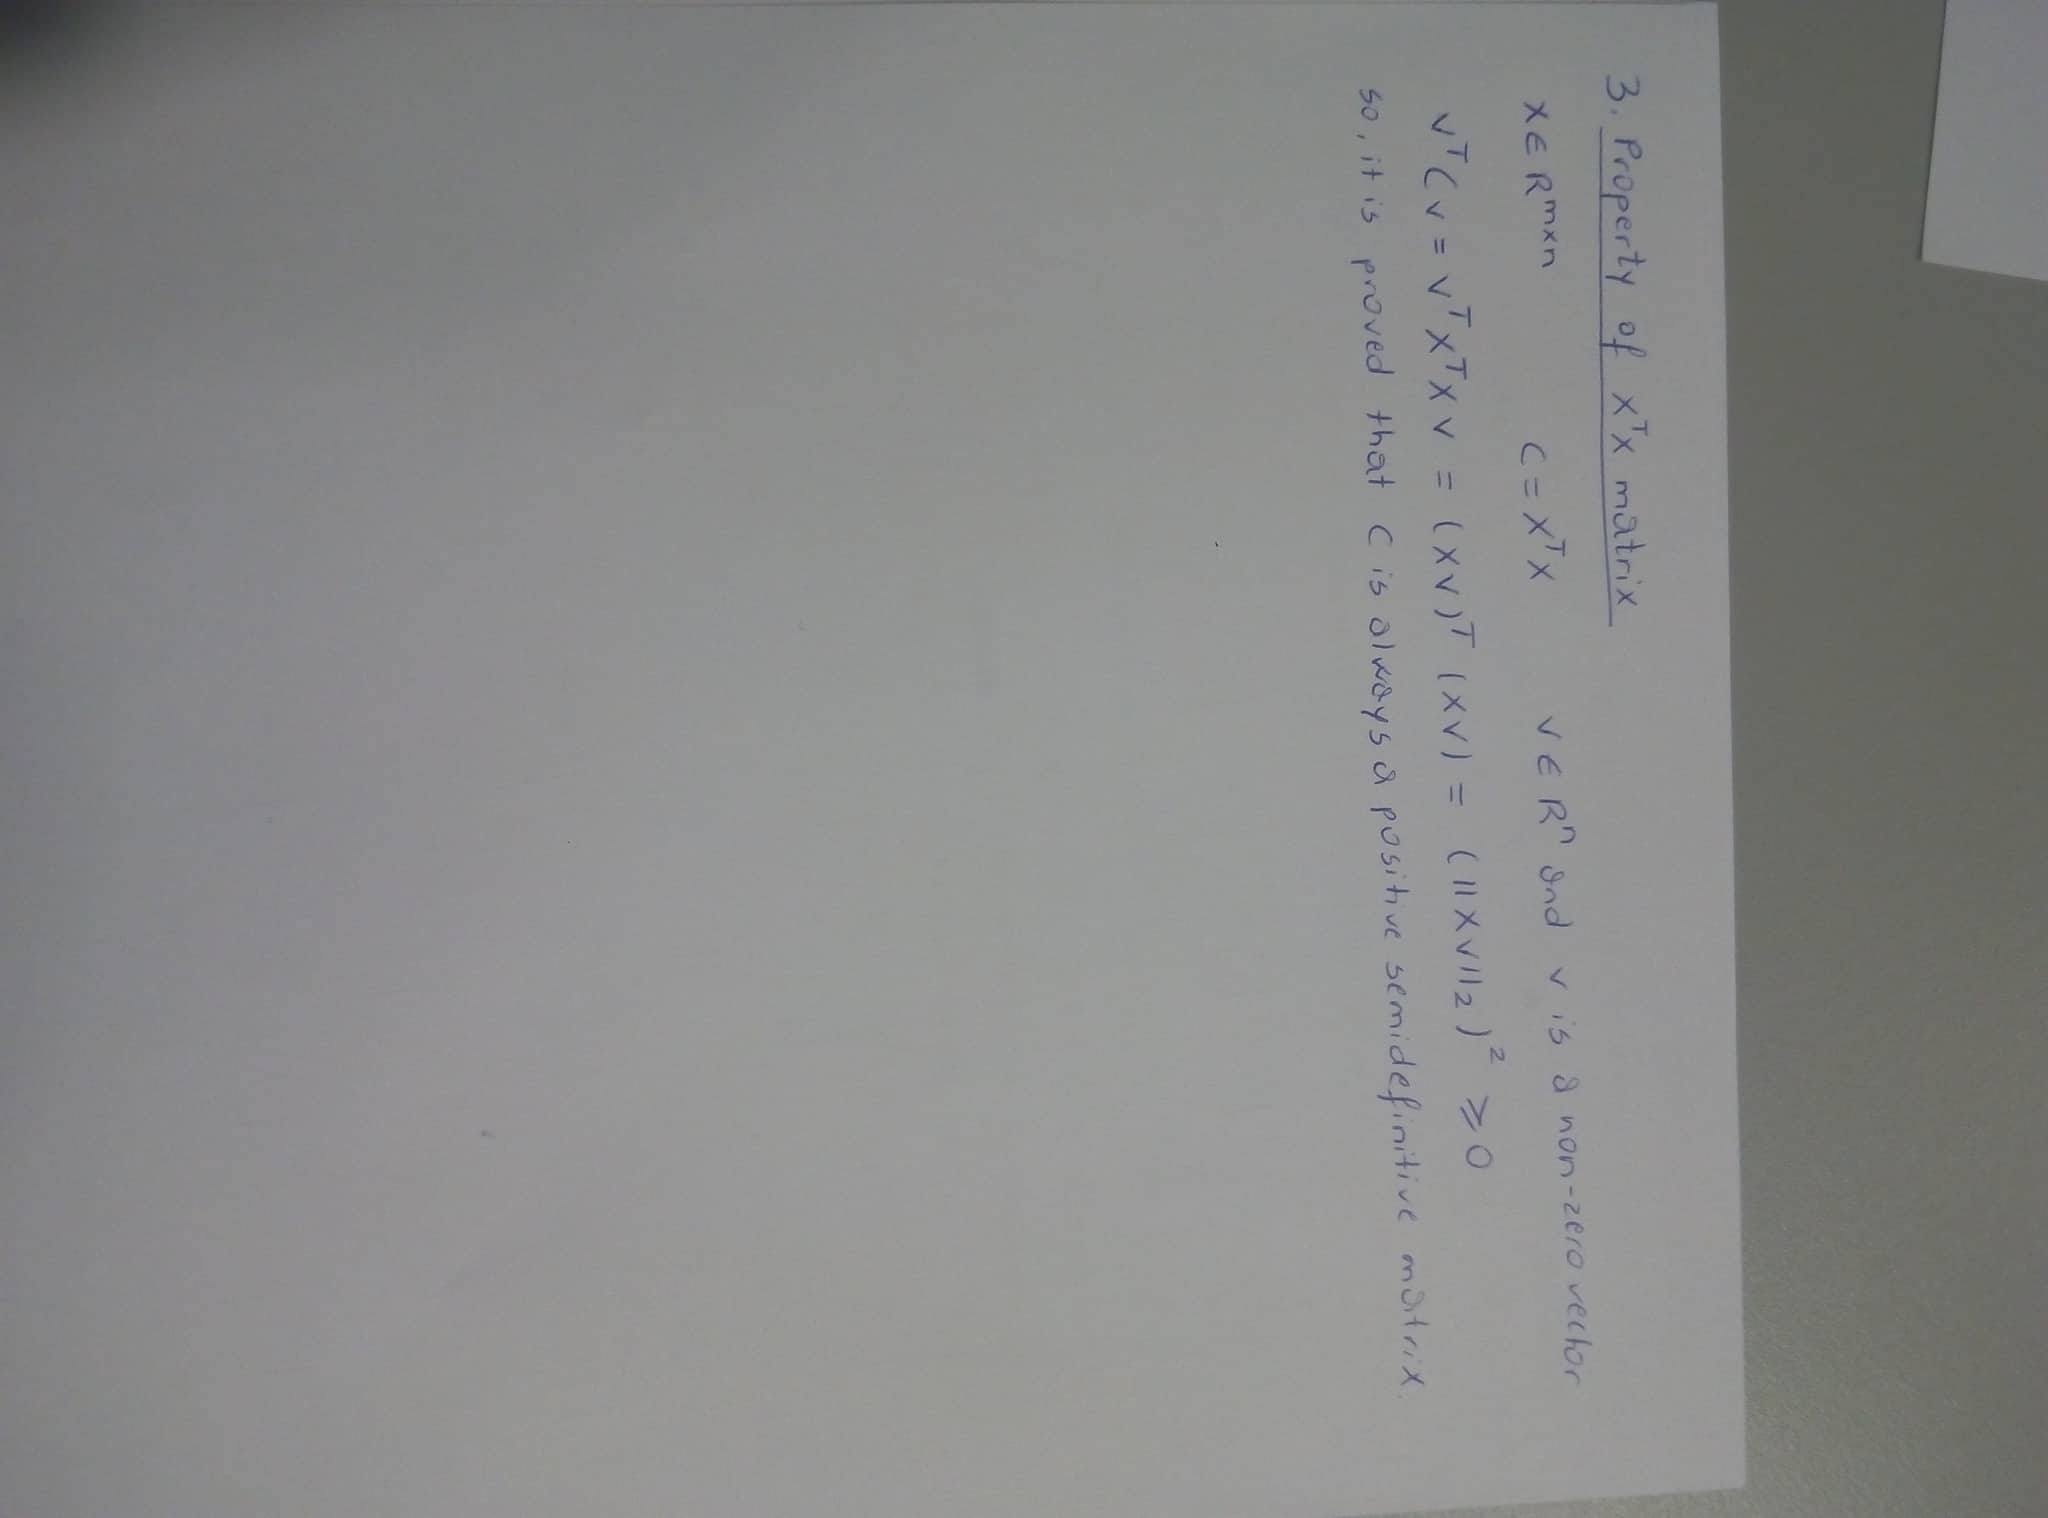 3. Property of XᵀX matrix
X ∈ Rᵐˣⁿ C = XᵀX v ∈ Rⁿ and v is a non-zero vector
vᵀCv = vᵀXᵀXv = (Xv)ᵀ(Xv) = (||Xv||₂)² ⩾ 0
so, it is proved that C is always a positive semidefinitive matrix.